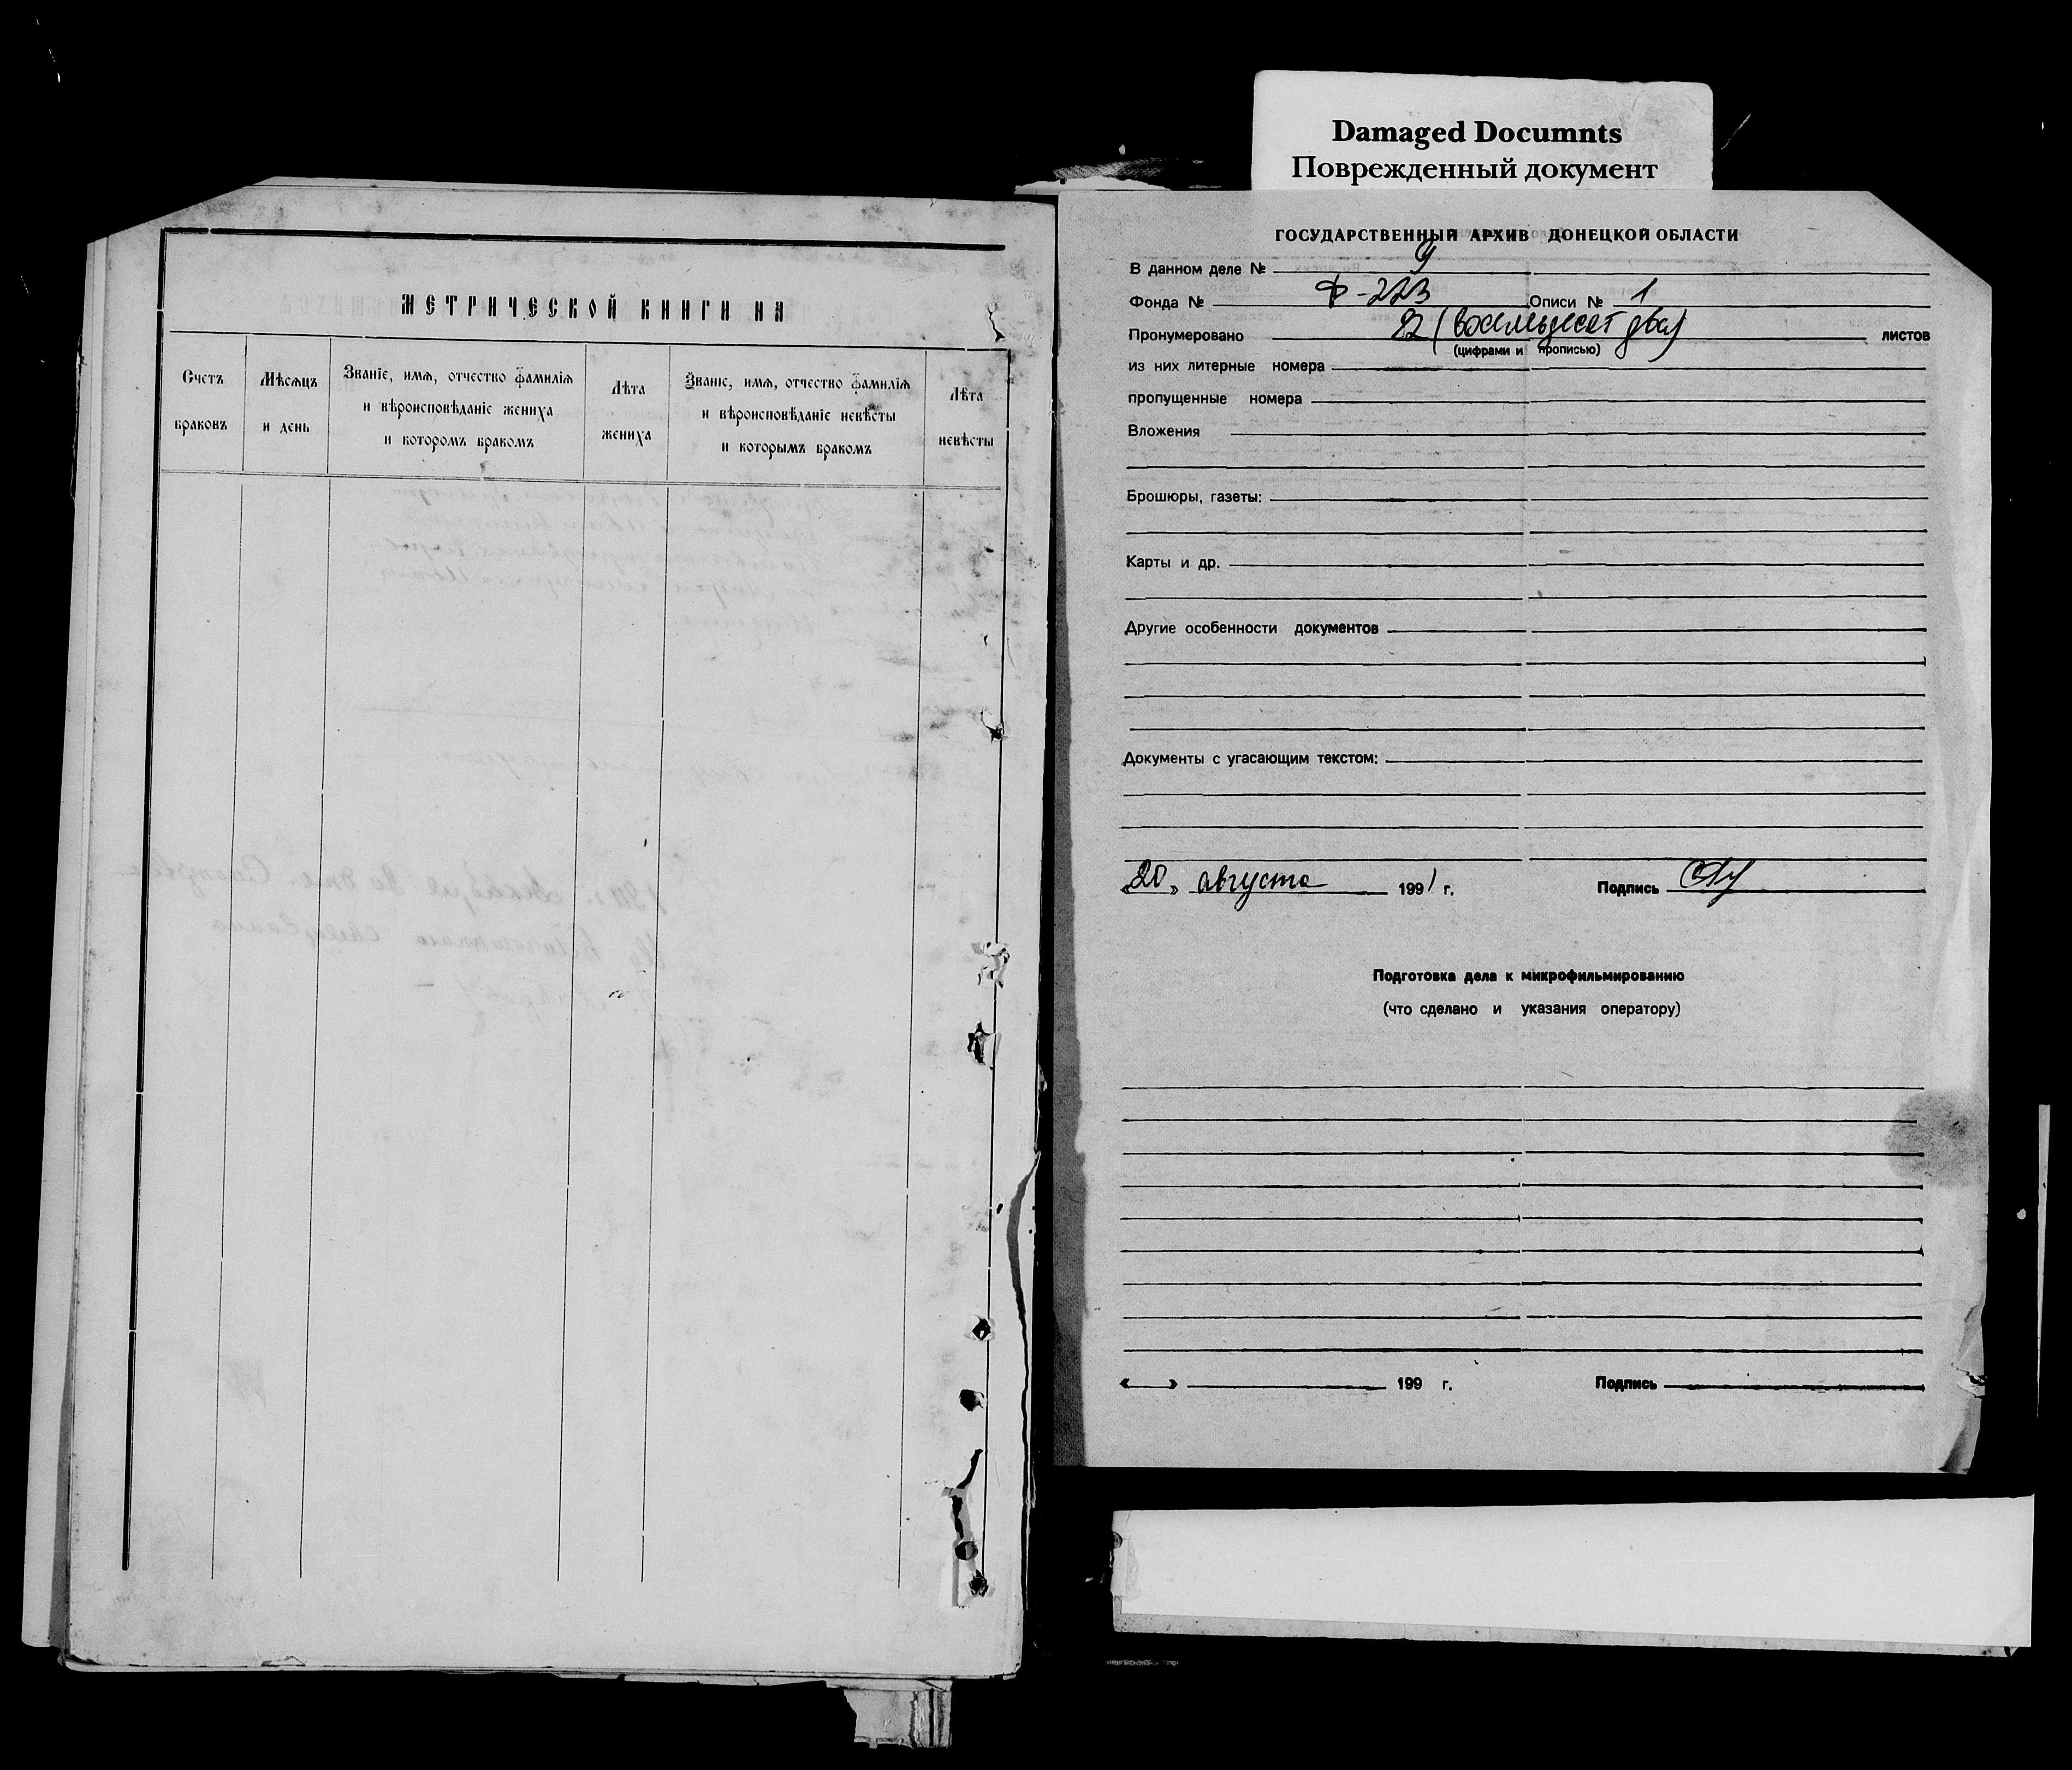 Damaged Documnts
Поврежденный документ
МЕТРИЧЕСКОЙ КНИГИ НА
Счетъ браковъ
Мѣсяцъ и день
Званіе, имя, отчество фамилія
и вѣроисповѣданіе жениха
и которомъ бракомъ
Лѣта жениха
Званіе, имя, отчество фамилія
и вѣроисповѣданіе невѣсты
и которымъ бракомъ
Лѣта невѣсты
ГОСУДАРСТВЕННЫЙ АРХИВ ДОНЕЦКОЙ ОБЛАСТИ
В данном деле № 9
Фонда № Ф-223 Описи № 1
Пронумеровано 82 (восемьдесят два) листов
(цифрами и прописью)
из них литерные номера
пропущенные номера
Вложения
Брошюры, газеты:
Карты и др.
Другие особенности документов
Документы с угасающим текстом:
«20» августа 1991 г. Подпись
Подготовка дела к микрофильмированию
(что сделано и указания оператору)
« » 199 г. Подпись